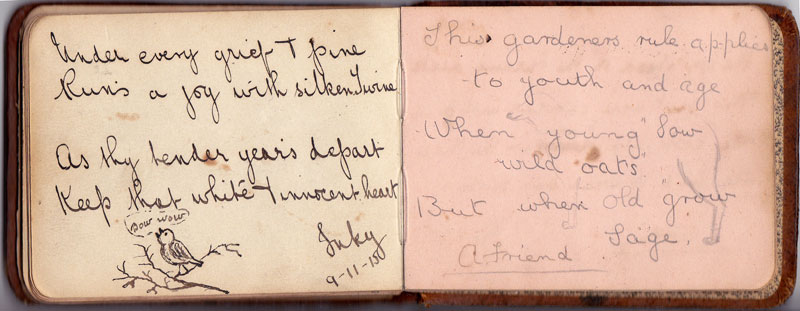 Under every grief & pine
Runs a joy with silken Twine
As thy tender year's depart
Keep that white & innocent heart
Bow wow
Inky
9-11-15
This gardeners rule applies
to youth and age
When "young" Sow
wild oats"
But when old "grow
Sage.
A Friend